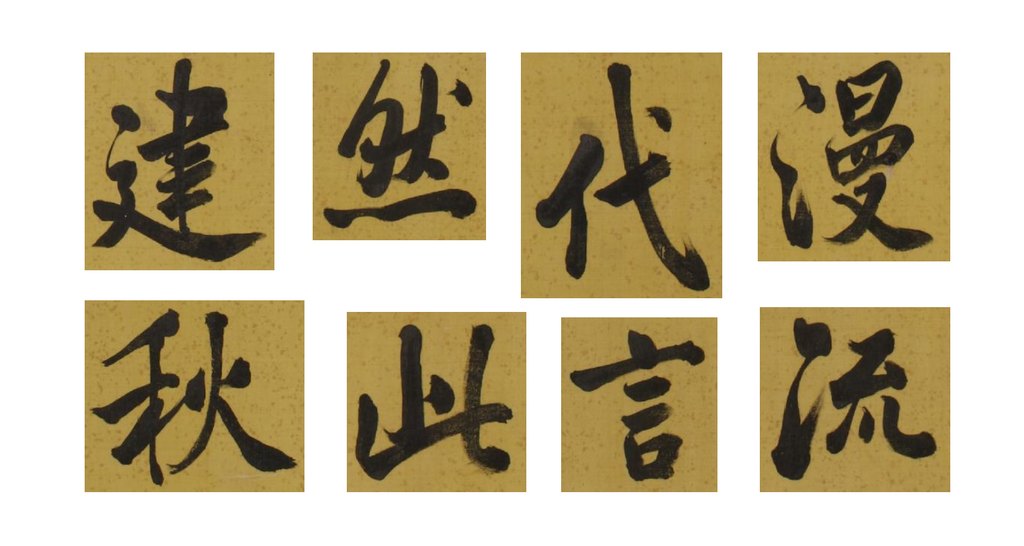 建然代漫
秋此言流